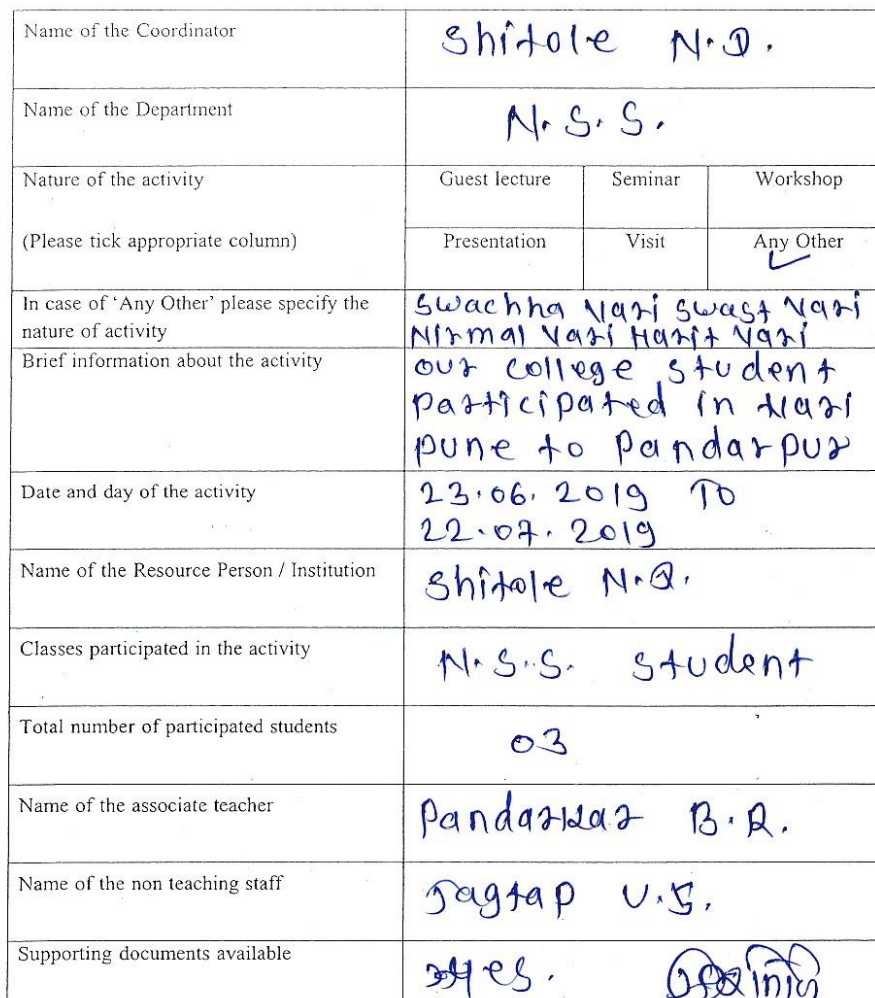 Name of the Coordinator
Shitole N.D.
Name of the Department
N.S.S.
Nature of the activity
Guest lecture Seminar Workshop
(Please tick appropriate column)
Presentation Visit Any Other
In case of 'Any Other' please specify the
nature of activity
Swachha Vari Swast Vari
Nirmal Vari Harit Vari
Brief information about the activity
our college student
participated in Vari
pune to Pandarpur
Date and day of the activity
23.06.2019 To
22.07.2019
Name of the Resource Person / Institution
Shitole N.D.
Classes participated in the activity
N.S.S. Student
Total number of participated students
03
Name of the associate teacher
Pandarkar B.R.
Name of the non teaching staff
Jagtap U.S.
Supporting documents available
yes.